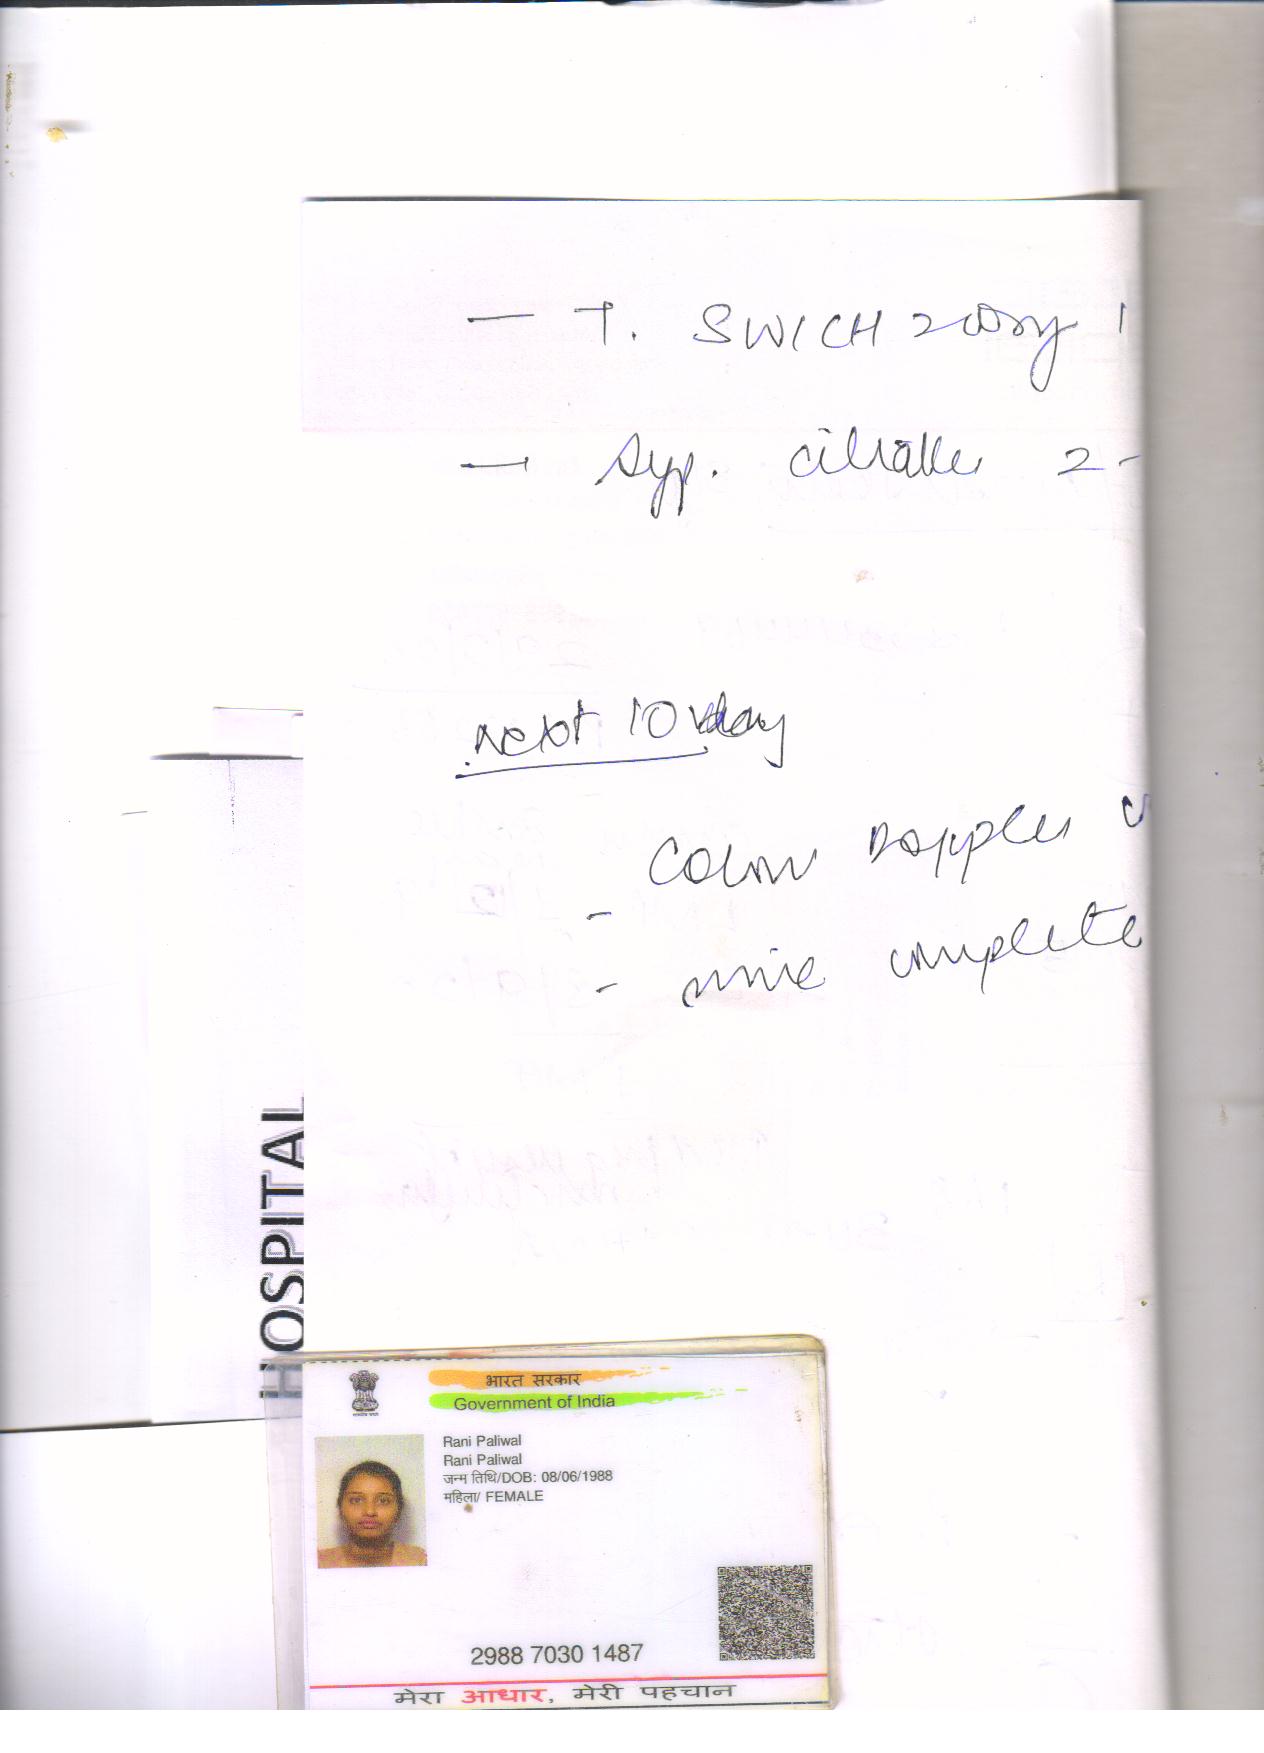 - T. SWICH 200mg 1
- Syp. citralka 2-
next 10 day
Colour Doppler
- urine complete
HOSPITAL
भारत सरकार
Government of India
Rani Paliwal
Rani Paliwal
जन्म तिथि/DOB: 08/06/1988
महिला/ FEMALE
2988 7030 1487
मेरा आधार, मेरी पहचान